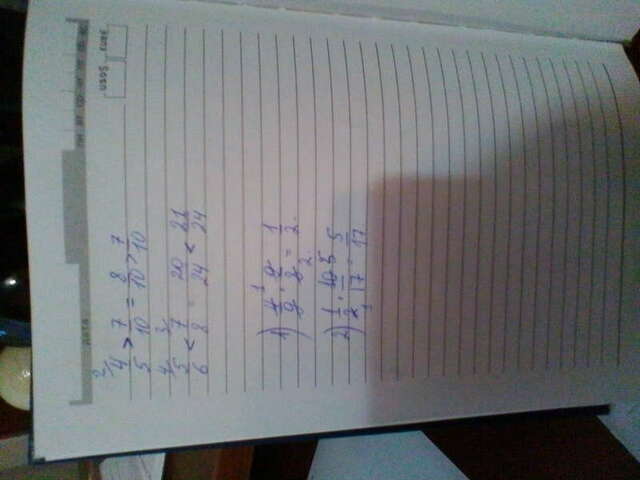 ДАТА ПН ВТ СР ЧТ ПТ СБ ВС
2/ 4/5 > 7/10 = 8/10 > 7/10
4/ 5/6 < 3/ 7/8 = 20/24 < 21/24
1) 4/9 · 9/8 = 1/2
2) 1/2 · 10/17 = 5/17